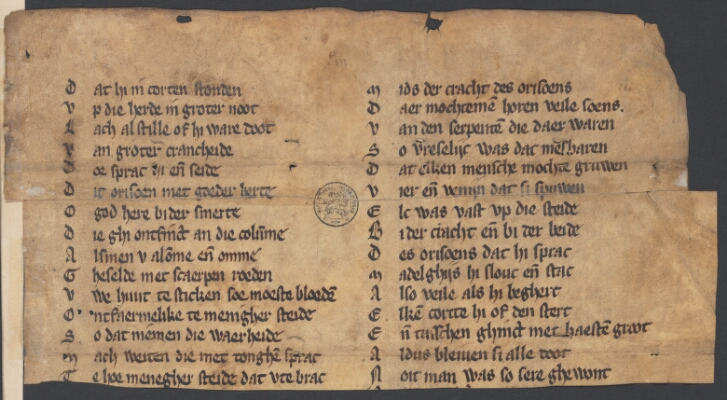 D at hi in corten stonden
V p die herde in groter noot
L ach al stille of hi ware doot
V an groter crancheide
D oe sprac hi en̄ seide
D it orisoen met goeder herte
O god here bi der smerte
D ie ghi ontfinct an die colūme
A lsmen v alōme en̄ omme
G heselde met scaerpen roeden
V we huut te sticken soe moeste bloedē
O ntfaermelike te menigher stede
S o dat mēmen die waerheide
M ach weiten die met tonghen sprac
T e hoe menegher steide dat vte brac
M ids der cracht des orisoens
D aer mochtemē horen veile soens.
V an den serpentē die daer waren
S o vreselijc was dat mesbaren
D at elken mensche mochte gruwen
V ier en̄ venijn dat si spuwen
E lc was vast vp die steide
B i der cracht en̄ bi der beide
D es orisoens dat hi sprac
M adelghijs hi slouc en̄ stac
A lso veile als hi beghert
E lkē cortte hi of den stert
E n̄ tusschen ghinct met haestē groot
A ldus bleuen si alle doot
N oit man was so sere ghewont